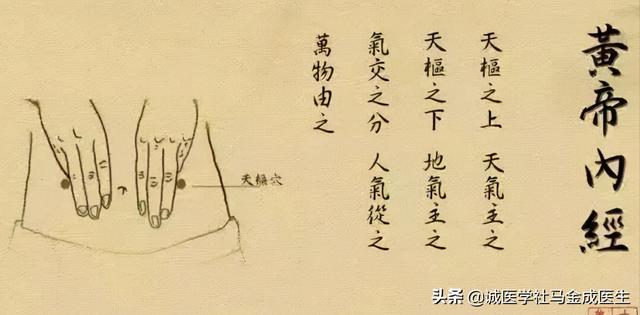 黃帝內經
天樞之上 天氣主之
天樞之下 地氣主之
氣交之分 人氣從之
萬物由之
天樞穴
头条 @诚医学社马金成医生